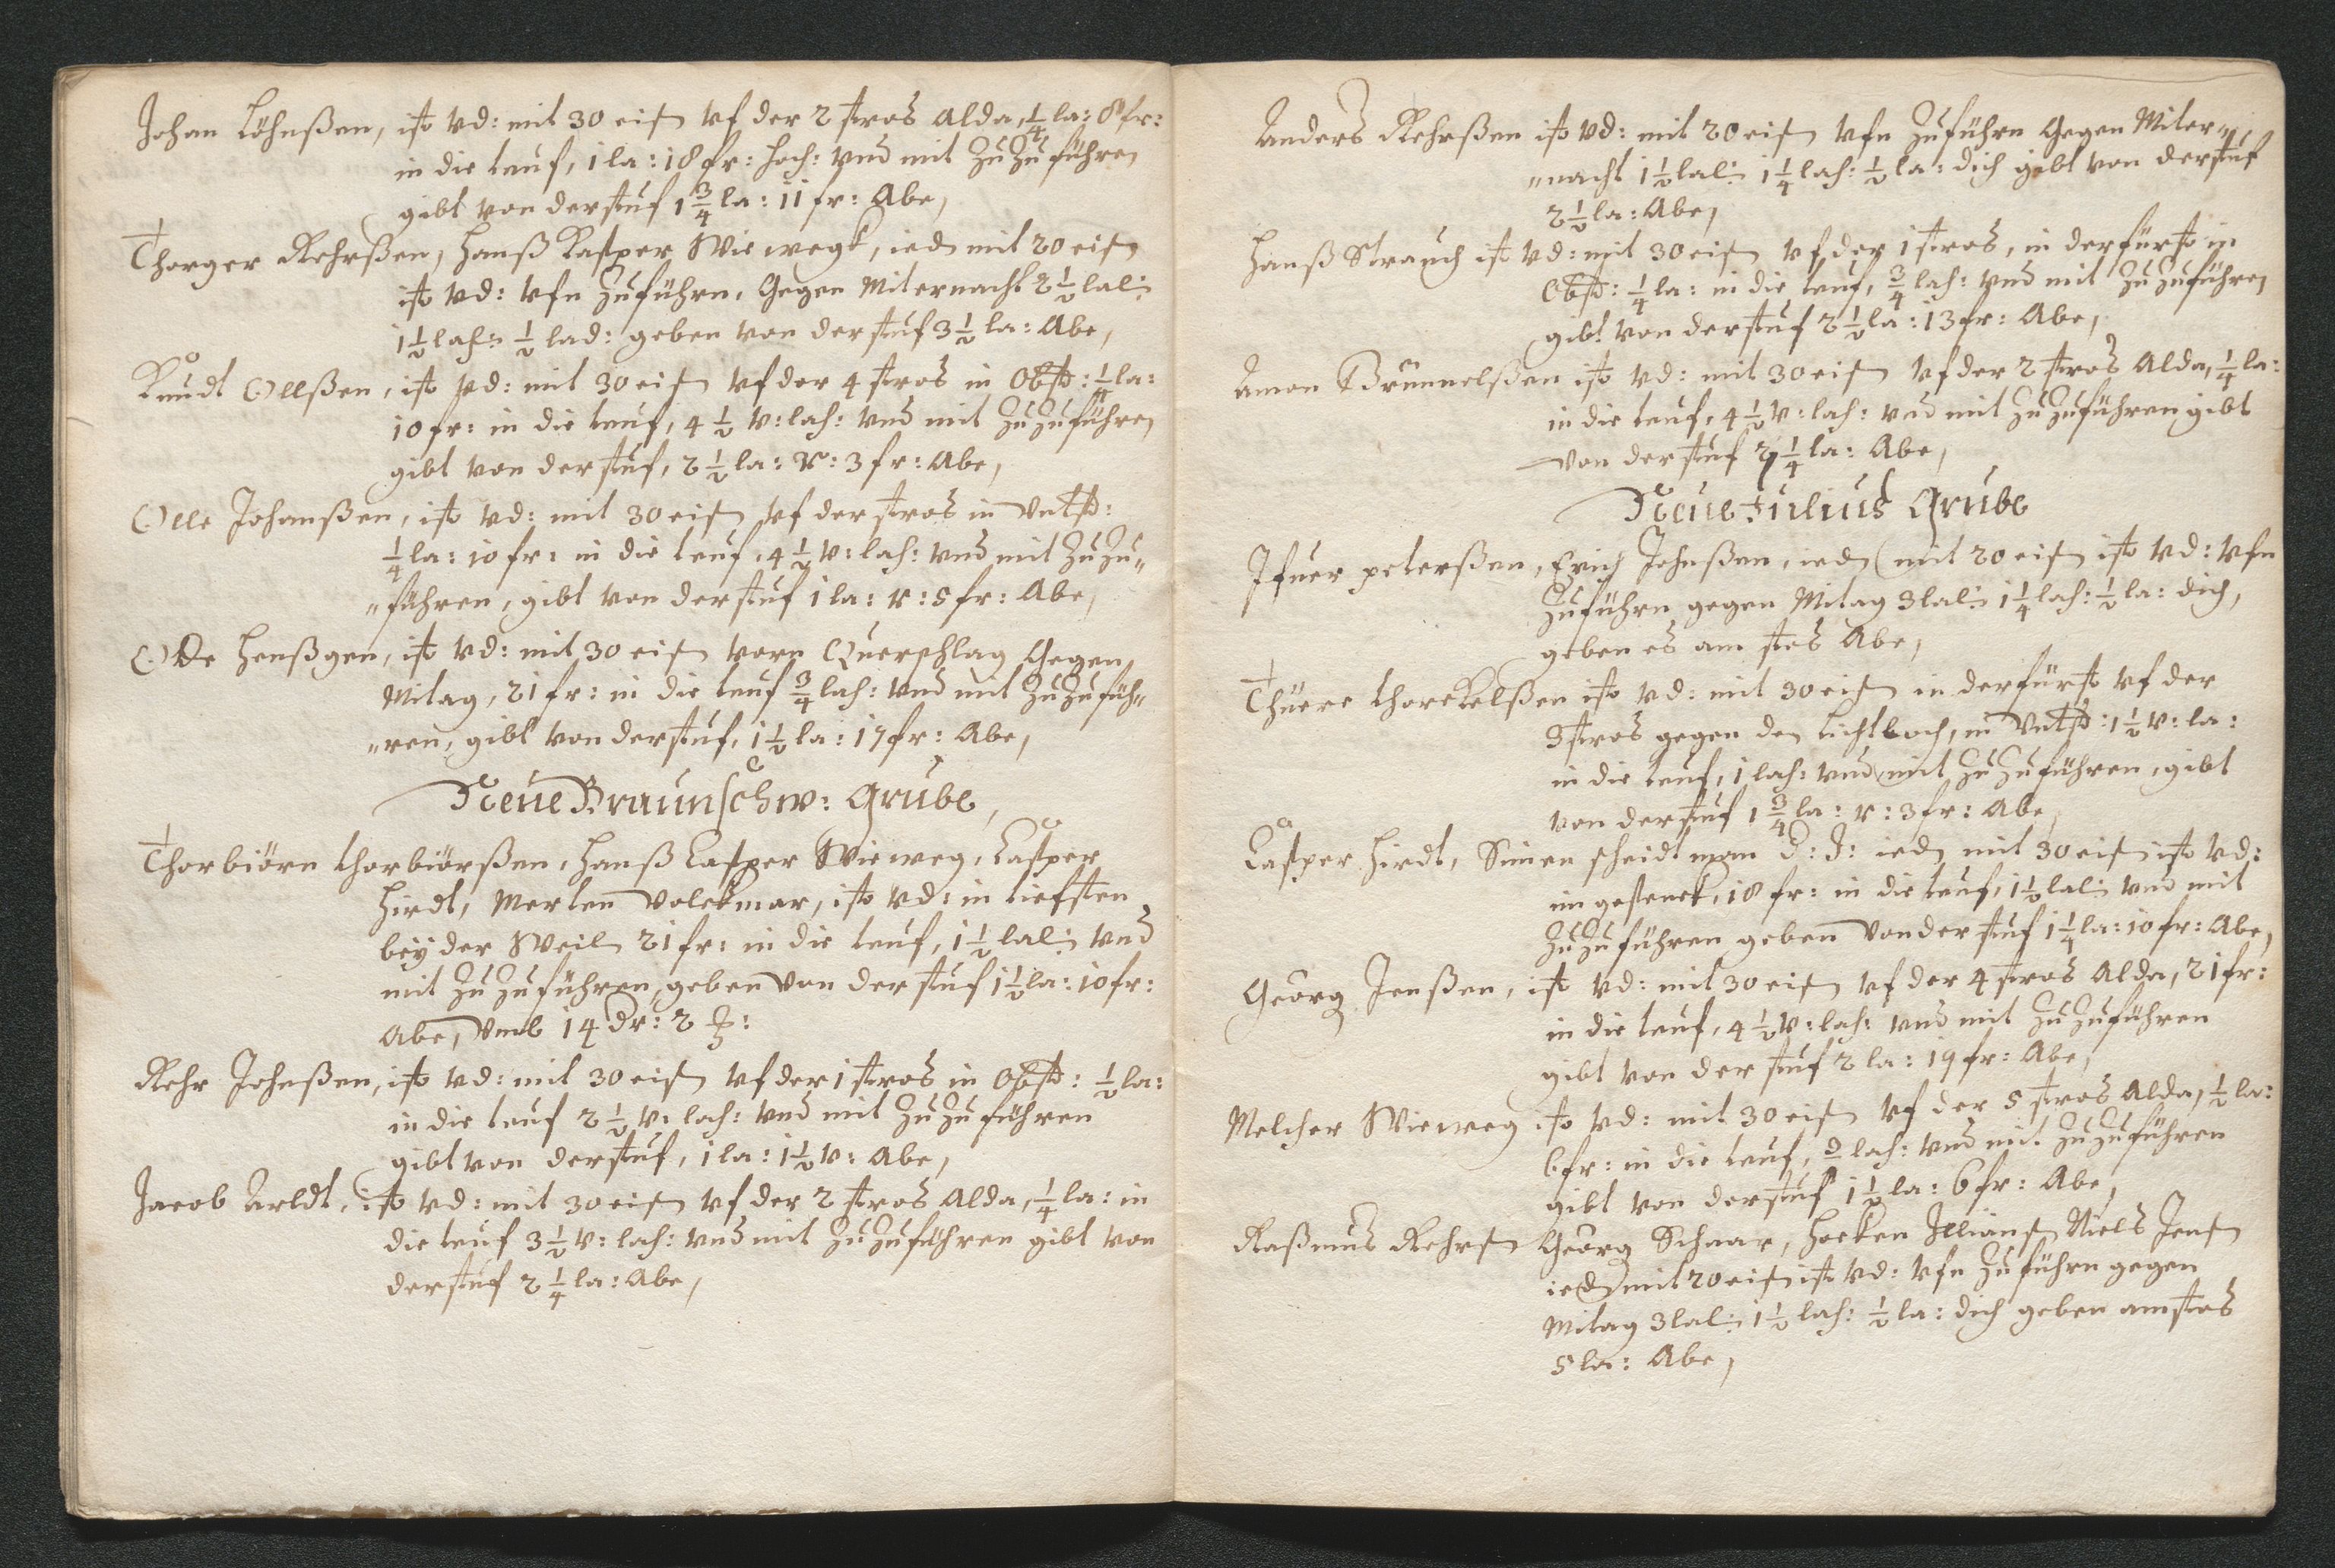 Johan Löhnßen, ist vd: mit 30 eisn vf der 2 stros Alda, 1/4 la: 8 fr:
in die teuf, 1 la: 18 fr: hoch: vnd mit Zu Zu führen
gibt von der stuf 1 3/4 la: 11 fr: Abe,
Thorger Rehrßen, Hanß Kasper Wiewegk, iedn mit 20 eisn
ist vd: vfn Zuführn, Gegen Miternacht 2 1/2 lal:
1 1/2 lah: 1/2 lad: geben von der stuf 3 1/2 la: Abe,
Knudt Ollßen, ist vd: mit 30 eisn vf der 4 stros in Obst: 1/4 la:
10 fr: in die teuf, 4 1/2 v: lah: vnd mit Zu Zu führen
gibt von der stuf, 2 1/2 la: v: 3 fr: Abe,
Olle Johanßen, ist vd: mit 30 eisn vf der stros in Vntst:
1/4 la: 10 fr: in die teuf, 4 1/2 v: lah: vnd mit Zu Zu„
„führen, gibt von der stuf 1 la: v: 5 fr: Abe,
Ode Henßgen, ist vd: mit 30 eisn vorn Querschlag Gegen
Mitag, 21 fr: in die teuf 3/4 lah: vnd mit Zu Zu füh„
„ren, gibt von der stuf, 1 1/2 la: 17 fr: Abe,
Neue Braunschw: Grube,
Thorbiörn thorbiörßen, Hanß Casper Wieweg, Casper
Hirdt, Merten Volckmar, ist vd: in tiefsten
bey der Weiln 21 fr: in die teuf, 1 1/2 lal: vnd
mit Zu Zu führen, geben von der stuf 1 1/2 la: 10 fr:
Abe, Vmb 14 dr: 2 ß:
Rehr Johnßen, ist vd: mit 30 eisn vf der 1 stros in Obst: 1/2 la:
in die teuf 2 1/2 v: lah: vnd mit Zu Zu führen
gibt von der stuf, 1 la: 1 1/2 v: Abe,
Jacob Arldt, ist vd: mit 30 eisn vf der 2 stros Alda, 1/4 la: in
die teuf 3 1/2 v: lah: vnd mit Zu Zu führen gibt von
der stuf 2 1/4 la: Abe,
Anders Rehrßen ist vd: mit 20 eisn vfn Zuführn Gegen Miter„
„nacht 1 1/2 lal: 1 1/4 lah: 1/2 la: dich gibt von der stuf
2 1/2 la: Abe,
Hanß Strauch ist vd: mit 30 eisn vf der 1 stros, in der fürst in
Obst: 1/4 la: in die teuf, 3/4 lah: vnd mit Zu Zu führen
gibt von der stuf 2 1/2 la: 13 fr: Abe,
Amon Brunnelßen ist vd: mit 30 eisn vf der 2 stros Alda, 1/4 la:
in die teuf, 4 1/2 v: lah: vnd mit Zu Zu führen gibt
von der stuf 2 1/4 la: Abe,
Neue Julius Grube
Ifuer peterßen, Erich Johnßen, iedn mit 20 eisn ist vd: vfn
Zuführn gegen Mitag 3 lal: 1 1/4 lah: 1/2 la: dich,
geben es am stos Abe,
Thuere thorckelßen ist vd: mit 30 eisn in der fürst vf der
3 stros gegen den lichtloch, in Vntst: 1 1/2 v: la:
in die teuf, 1 lah: vnd mit Zu Zu führen, gibt
von der stuf 1 3/4 la: v: 3 fr: Abe,
Casper Hirdt, Simen scheidtman D: J: iedn mit 30 eisn ist vd:
im gesenck, 18 fr: in die teuf, 1 1/2 lal: vnd mit
Zu Zu führen geben von der stuf 1 1/4 la: 10 fr: Abe,
Georg Jenßen, ist vd: mit 30 eisn vf der 4 stros Alda, 21 fr:
in die teuf, 4 1/2 v: lah: vnd mit Zu Zu führen
gibt von der stuf 2 la: 19 fr: Abe,
Melcher Wieweg ist vd: mit 30 eisn vf der 5 stros Alda, 1/2 la:
6 fr: in die teuf, lah: vnd mit Zu Zu führen
gibt von der stuf 1 1/2 la: 6 fr: Abe,
Raßmus Rehrsn Georg Schaar, Hocken Illiansn Niels Jensn
iedn mit 20 eisn ist vd: vfn Zuführn gegen
Mitag 3 lal: 1 1/2 lah: 1/2 la: dich geben am stos
5 la: Abe,